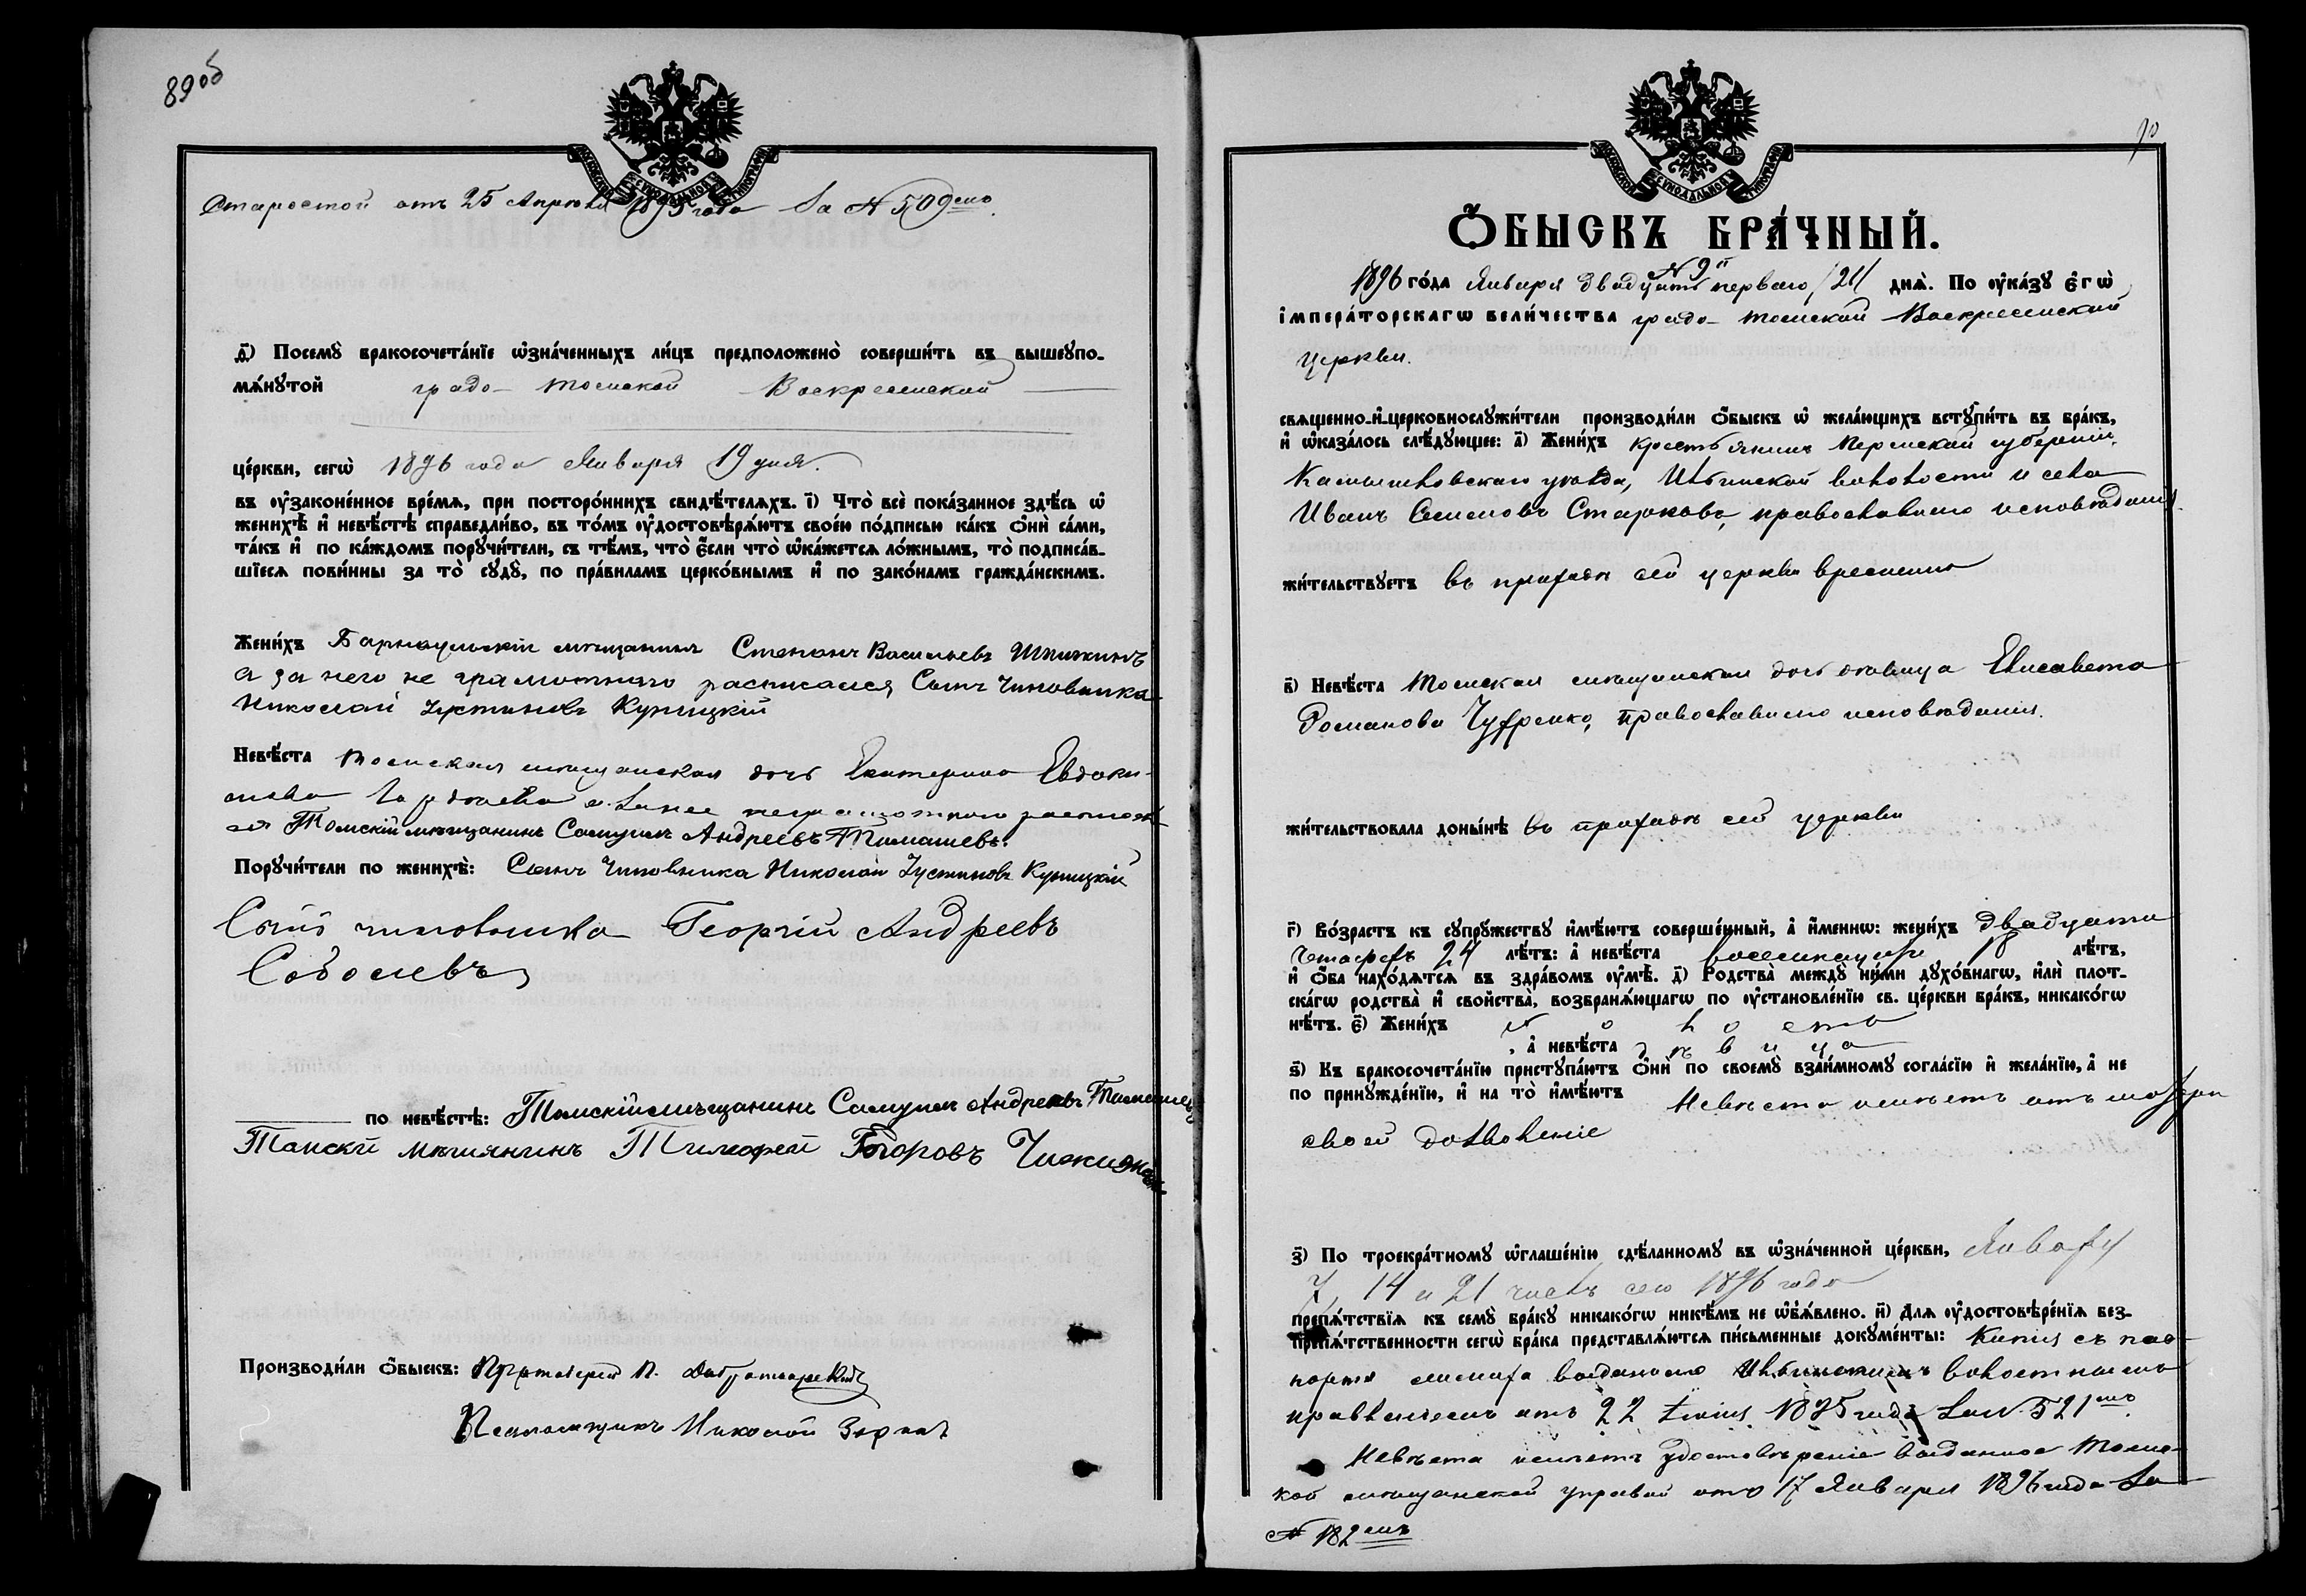 89об
Старостой отъ 25 Апрѣля 1895 года за № 509емъ.
д҃) Посемꙋ̀ бракосочета́нїе ѡ҆зна́ченныхъ ли́цъ предположено̀ соверши́ть въ вышеꙋпо-
мѧ́нꙋтой градо-Томской Воскресенской
це́ркви, сегѡ̀ 1896 года Января 19 дня.
въ ᲂу҆зако́ненное вре́мѧ, при посторо́ннихъ свидѣ́телѧхъ. і҃) Что̀ всѐ пока́занное здѣ́сь ѡ҆
женихѣ̀ и҆ невѣ́стѣ справедли́во, въ то́мъ ᲂу҆достовѣрѧ́ютъ свое́ю по́дписью ка́къ ѻ҆нѝ са́ми,
та́къ и҆ по ка́ждомъ порꙋчи́тели, съ тѣ́мъ, что̀ є҆́сли что̀ ѡ҆ка́жетсѧ ло́жнымъ, то̀ подписа́в-
шїесѧ пови́нны за то̀ сꙋдꙋ̀, по пра́виламъ церко́внымъ и҆ по зако́намъ гражда́нскимъ.
Жени́хъ Барнаульскій мещанинъ Степанъ Васильевъ Шишкинъ
а за него не грамотнаго расписался Сынъ Чиновника
Николай Устиновъ Куницкій
Невѣ́ста Томская мѣщанская дочь Екатерина Евдоки-
мова а за нее неграмотную росписал-
ся Томскій мѣщанинъ Самуилъ Андреевъ Тимашевъ.
Порꙋчи́тели по женихѣ̀: Сынъ Чиновника Николай Устиновъ Куницкій
Сынъ чиновника Георгій Андреевъ
Соболевъ
по невѣ́стѣ: Томскій мѣщанинъ Самуилъ Андреевъ Тимашевъ
Томскій мѣшянинъ Тимофей Егоровъ
Производи́ли ѻ҆́быскъ: Протоіерей П.
Псаломщикъ Николай
90
Ѻ҆БЫСКЪ БРА́ЧНЫЙ.
№ 9й
1896 го́да Января двадцать перваго /21/ днѧ̀. По ᲂу҆ка́зꙋ є҆гѡ̀
і҆мпера́торскагѡ вели́чества градо-Томской Воскресенской
церкви.
свѧщенно-и҆-церковнослꙋжи́тели производи́ли ѻ҆́быскъ ѡ҆ жела́ющихъ встꙋпи́ть въ бра́къ,
и҆ ѡ҆каза́лось слѣ́дꙋющее: а҃) Жени́хъ крестьянинъ Пермской губерніи,
Камышловскаго уѣзда, Ильинской волости и села
Иванъ Семеновъ Старковъ, православнаго исповѣданія.
жи́тельствꙋетъ въ приходѣ сей церкви временно
в҃) Невѣ́ста Томская мѣщанская дочь дѣвица Елисавета
Романова Чуфренко, православнаго исповѣданія.
жи́тельствовала доны́нѣ въ приходѣ сей церкви
г҃) Во́зрастъ къ сꙋпрꙋ́жествꙋ и҆мѣ́ютъ соверше́нный, а҆ и҆́меннѡ: жени́хъ двадцати
четырехъ 24 лѣ́тъ: а҆ невѣ́ста восемнадцати 18 лѣ́тъ,
и҆ ѻ҆́ба нахо́дѧтсѧ въ здра́вомъ ᲂу҆мѣ̀. д҃) Родства̀ междꙋ̀ ни́ми дꙋхо́внагѡ, и҆лѝ плот-
ска́гѡ родства̀ и҆ свойства̀, возбранѧ́ющагѡ по ᲂу҆становле́нїю св. це́ркви бра́къ, никако́гѡ
нѣ́тъ. є҃) Жени́хъ холостъ
, а҆ невѣ́ста дѣвица
ѕ҃) Къ бракосочета́нїю пристꙋпа́ютъ ѻ҆нѝ по своемꙋ̀ взаи́мномꙋ согла́сїю и҆ жела́нїю, а҆ не
по принꙋжде́нїю, и҆ на то̀ и҆мѣ́ютъ Невѣста имѣетъ отъ матери
своей дозволеніе
з҃) По троекра́тномꙋ ѡ҆глаше́нїю сдѣ́ланномꙋ въ ѡ҆зна́ченной це́ркви, Январ.
7, 14 и 21 числъ сего 1896 года
препѧ́тствїѧ къ семꙋ̀ бра́кꙋ никако́гѡ никѣ́мъ не ѡ҆б̾ѧ́влено. и҃) Длѧ ᲂу҆достовѣре́нїѧ без-
препѧ́тственности сегѡ̀ бра́ка представлѧ́ютсѧ пи́сьменные докꙋме́нты: Копія съ пас-
порта жениха выданнаго Ильинскимъ волостнымъ
правленіемъ отъ 22 Іюня 1895 года за № 521мъ.
Невѣста имѣетъ удостовѣреніе выданное Томс-
кой мѣщанской управой отъ 17 Января 1896 года за
№ 182мъ